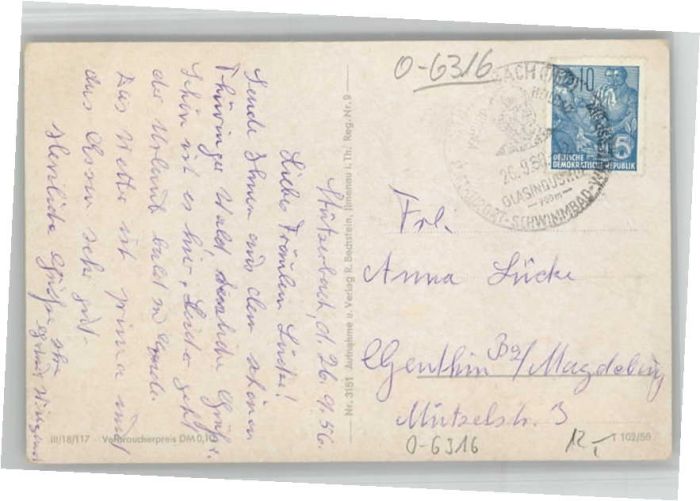 Stützerbach, d. 26.9.56.
Liebes Fräulein Lücke!
Sende Ihnen aus dem schönen
Thüringer Wald, herzliche Grüße.
Schön ist es hier, Leider geht
der Urlaub bald zu Ende.
Das Wetter ist prima und
das Essen sehr gut.
Herzliche Grüße
III/18/117 Verbraucherpreis DM 0,10
Nr. 3151 Aufnahme u. Verlag R. Bechstein, Ilmenau i. Th. Reg.-Nr. 9
O-6316
10
5
DEUTSCHE
DEMOKRATISCHE REPUBLIK
26.9.56
GLASINDUSTRIE
WINTERSPORT-SCHWIMMBAD
Frl.
Anna Lücke
Genthin Bz/Magdeburg
Mützelstr. 3
O-6316
12,-
T 102/56